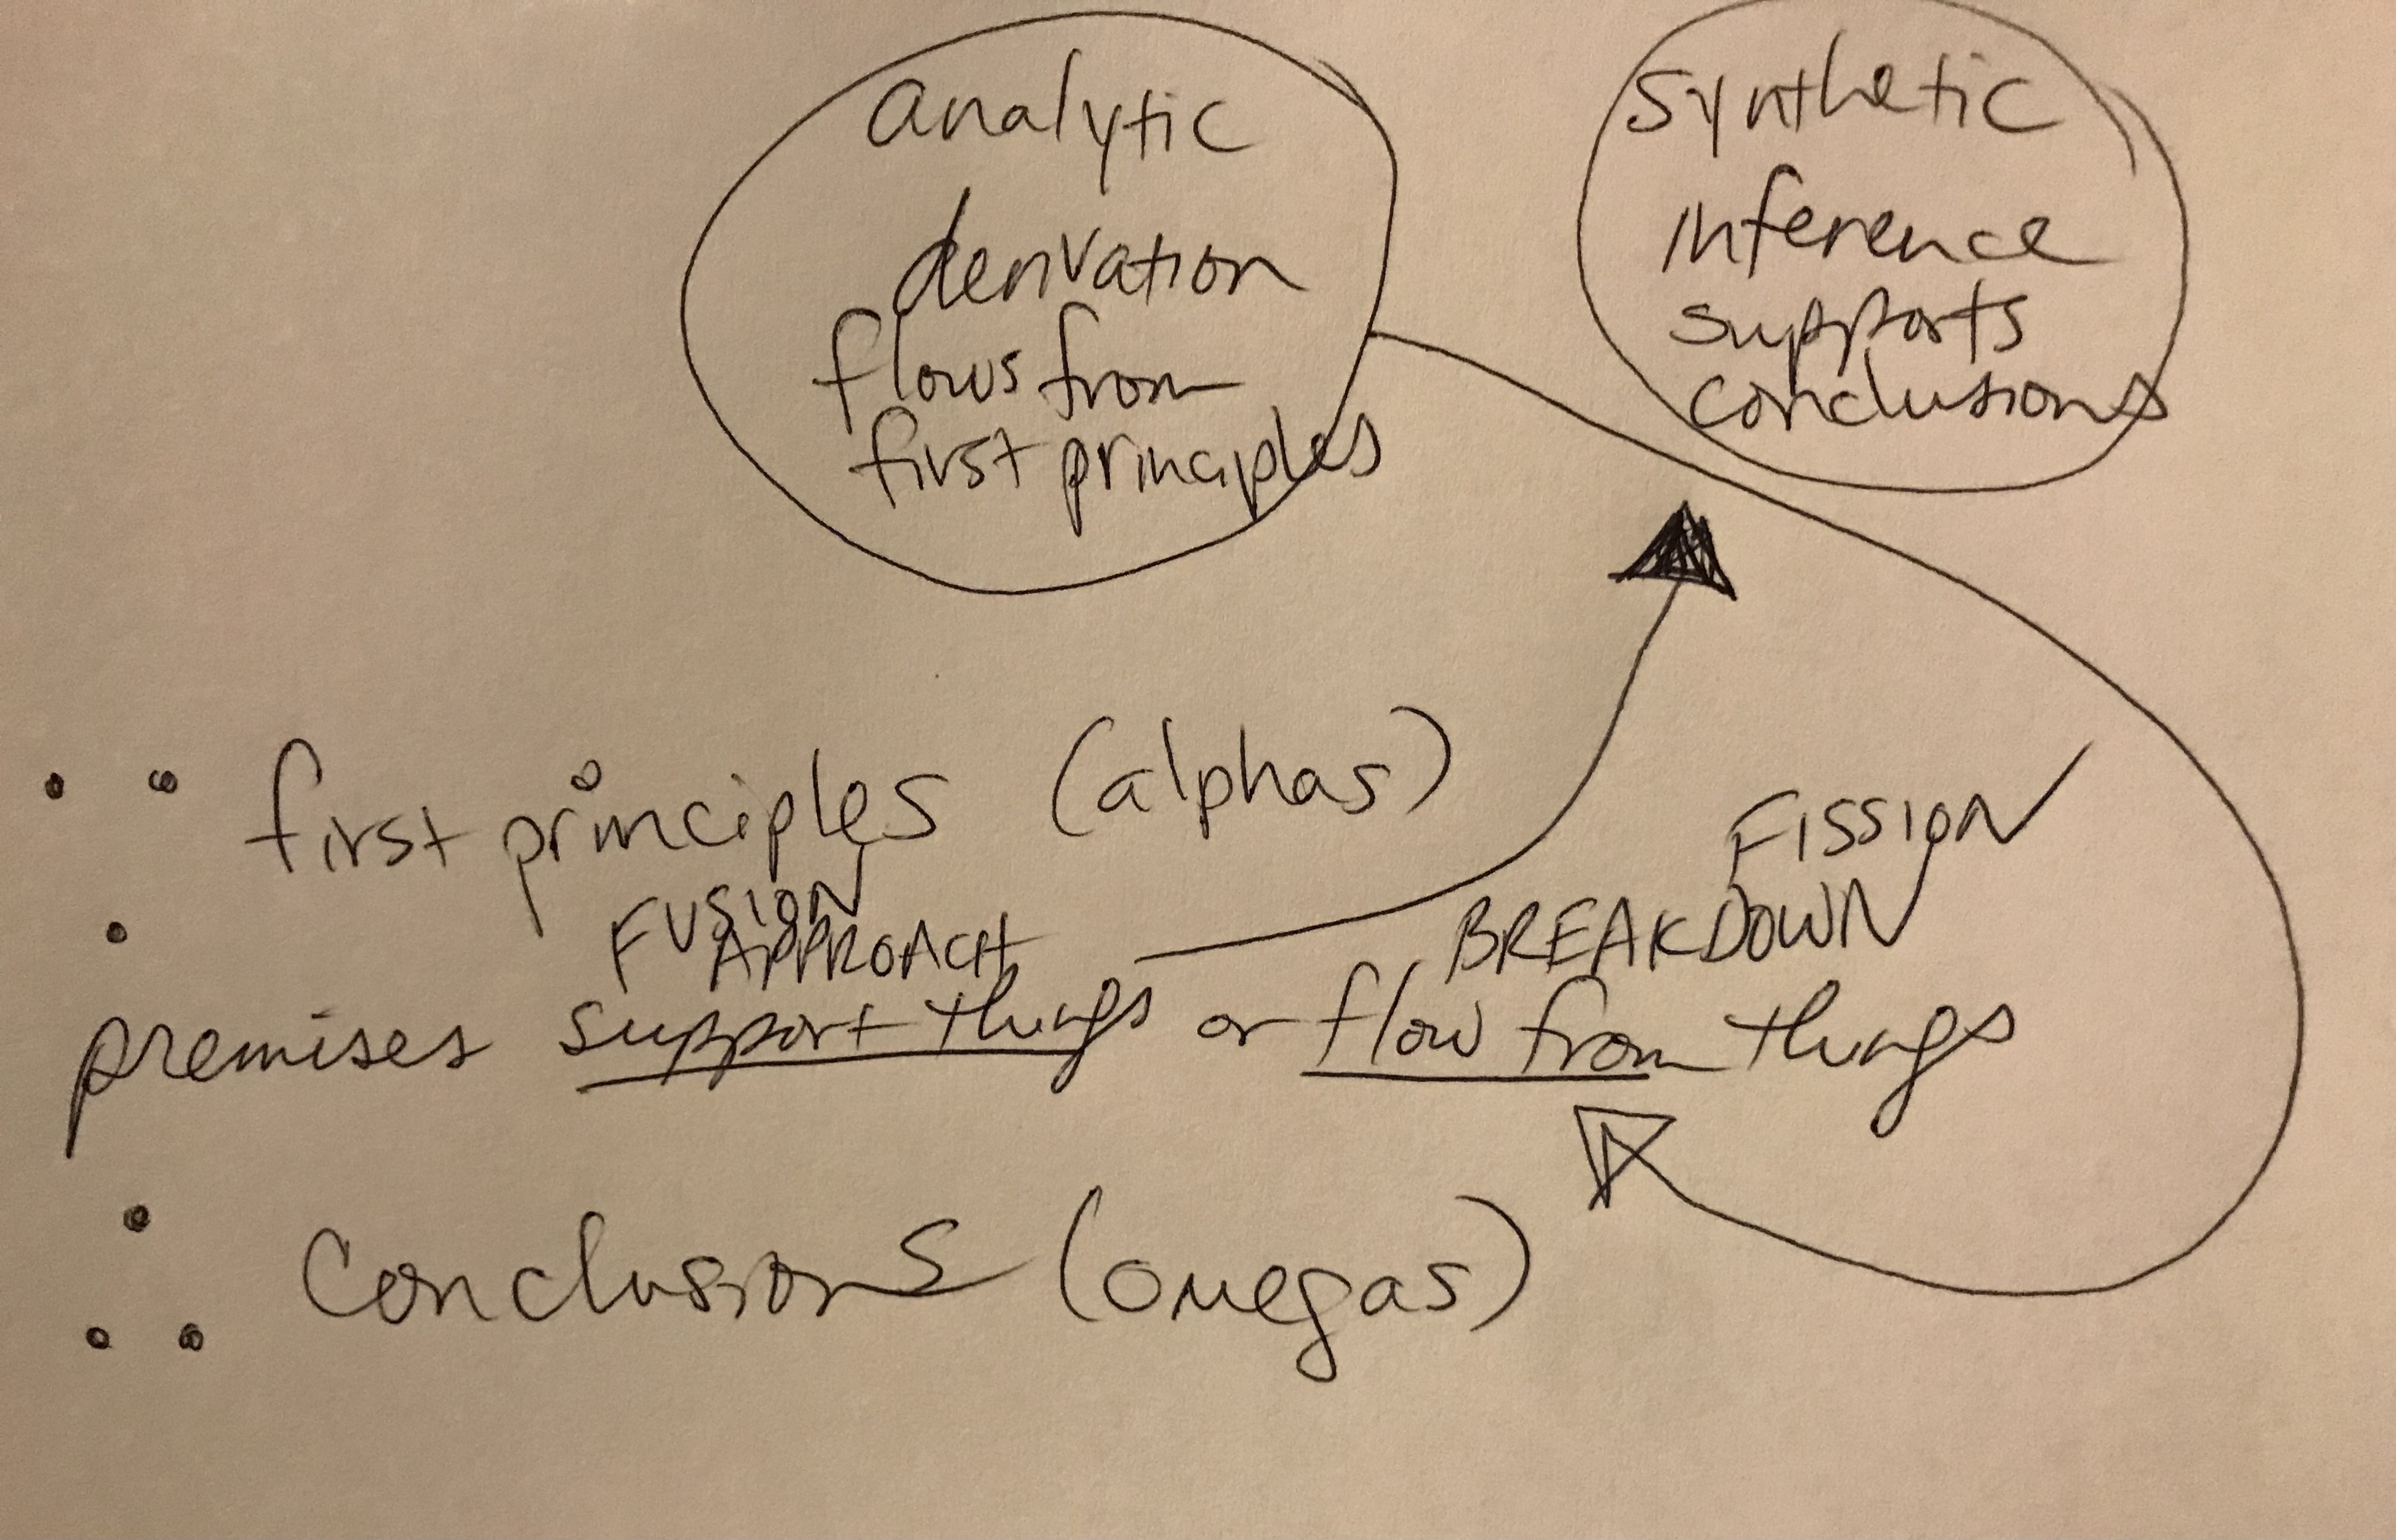 analytic
derivation
flows from
first principles
synthetic
inference
supports
conclusions
∵ first principles (alphas)
FUSION
APPROACH
FISSION
BREAKDOWN
premises support things or flow from things
∴ conclusions (omegas)